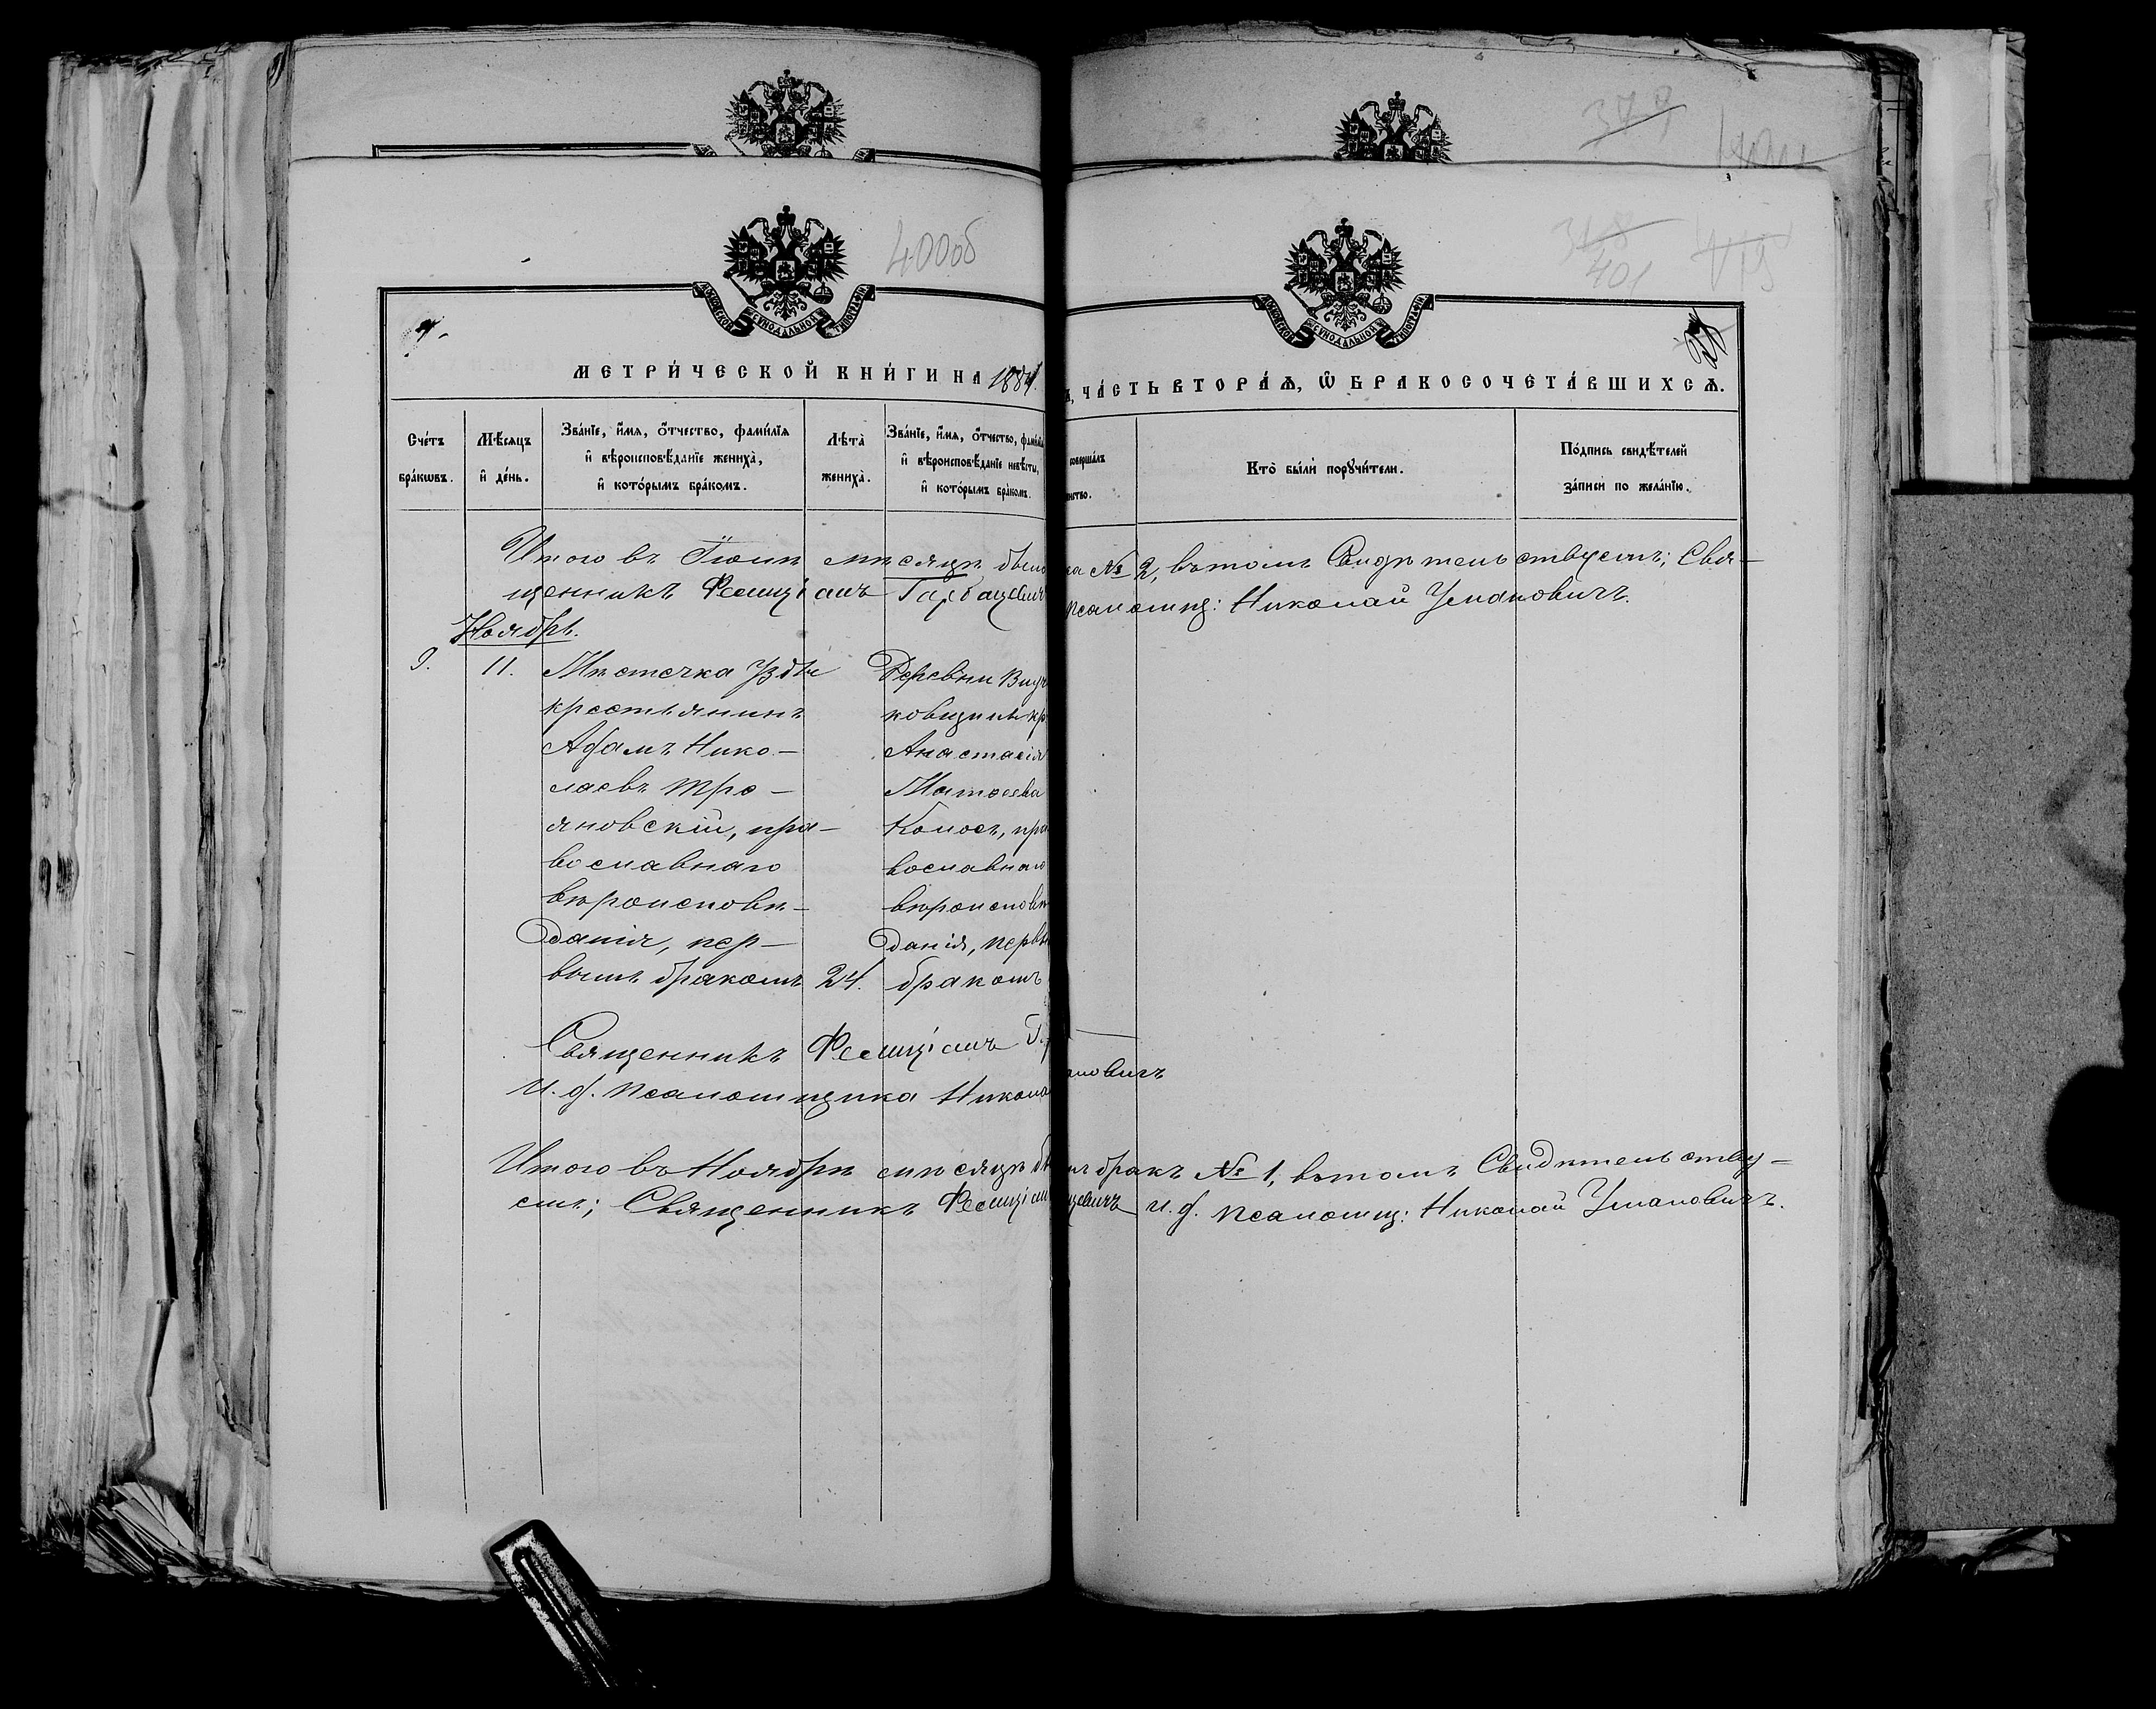 400об
401
МОСКОВСКОЙ СѴНОДАЛЬНОЙ ТИПОГРАФІИ
МОСКОВСКОЙ СѴНОДАЛЬНОЙ ТИПОГРАФІИ
МЕТРИ́ЧЕСКОЙ КНИ́ГИ НА 1884
ЧА́СТЬ ВТОРА́Ѧ, Ѽ БРАКОСОЧЕТА́ВШИХСѦ.
Сче́тъ бра́кѡвъ.
Мѣ́сѧцъ и҆ де́нь.
Зва́нїе, и҆́мѧ, ѻ҆́тчество, фами́лїѧ
и҆ вѣроисповѣ́данїе жениха̀,
и҆ кото́рымъ бра́комъ.
Лѣта̀ жениха̀.
Зва́нїе, и҆́мѧ, ѻ҆́тчество, фами́лїѧ
и҆ вѣроисповѣ́данїе невѣ́сты,
и҆ кото́рымъ бра́комъ.
соверша́лъ
Кто̀ бы́ли порꙋчи́тели.
По́дпись свидѣ́телей
за́писи по жела́нїю.
Итого въ Іюнѣ мѣсяцѣ было
ка № 2, въ томъ Свидѣтельствуемъ; Свя-
щенникъ Фелиціанъ Гарбацевичъ
псаломщ: Николай Умановичъ.
Ноябрь.
9.
11.
Мѣстечка Узды
крестьянинъ
Адамъ Нико-
лаевъ Тро-
яновскій, пра-
вославнаго
вѣроисповѣ-
данія, пер-
вымъ бракомъ
24.
Деревни
ковщины кр
Анастасія
Матѳеева
Колосъ, пра
вославнаго
вѣроисповѣ
данія, первы
бракомъ
Священникъ Фелиціанъ
И. д. псаломщика Никола
ановичъ
Итого въ Ноябрѣ мѣсяцѣ бы
лъ бракъ № 1, въ томъ Свидѣтельству-
емъ; Священникъ Фелиціан
цевичъ И. д. псаломщ: Николай Умановичъ.